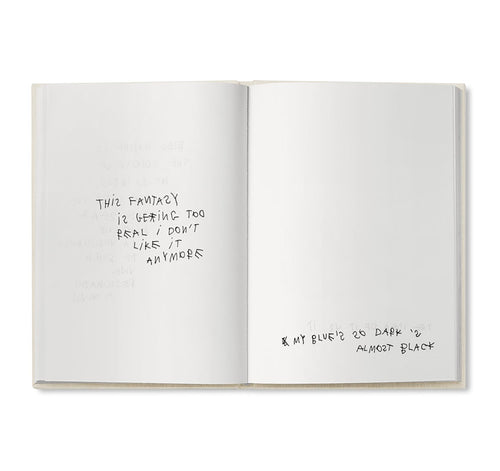 THIS FANTASY
IS GETTING TOO
REAL I DON'T
LIKE IT
ANYMORE
& MY BLUE'S SO DARK 'S
ALMOST BLACK